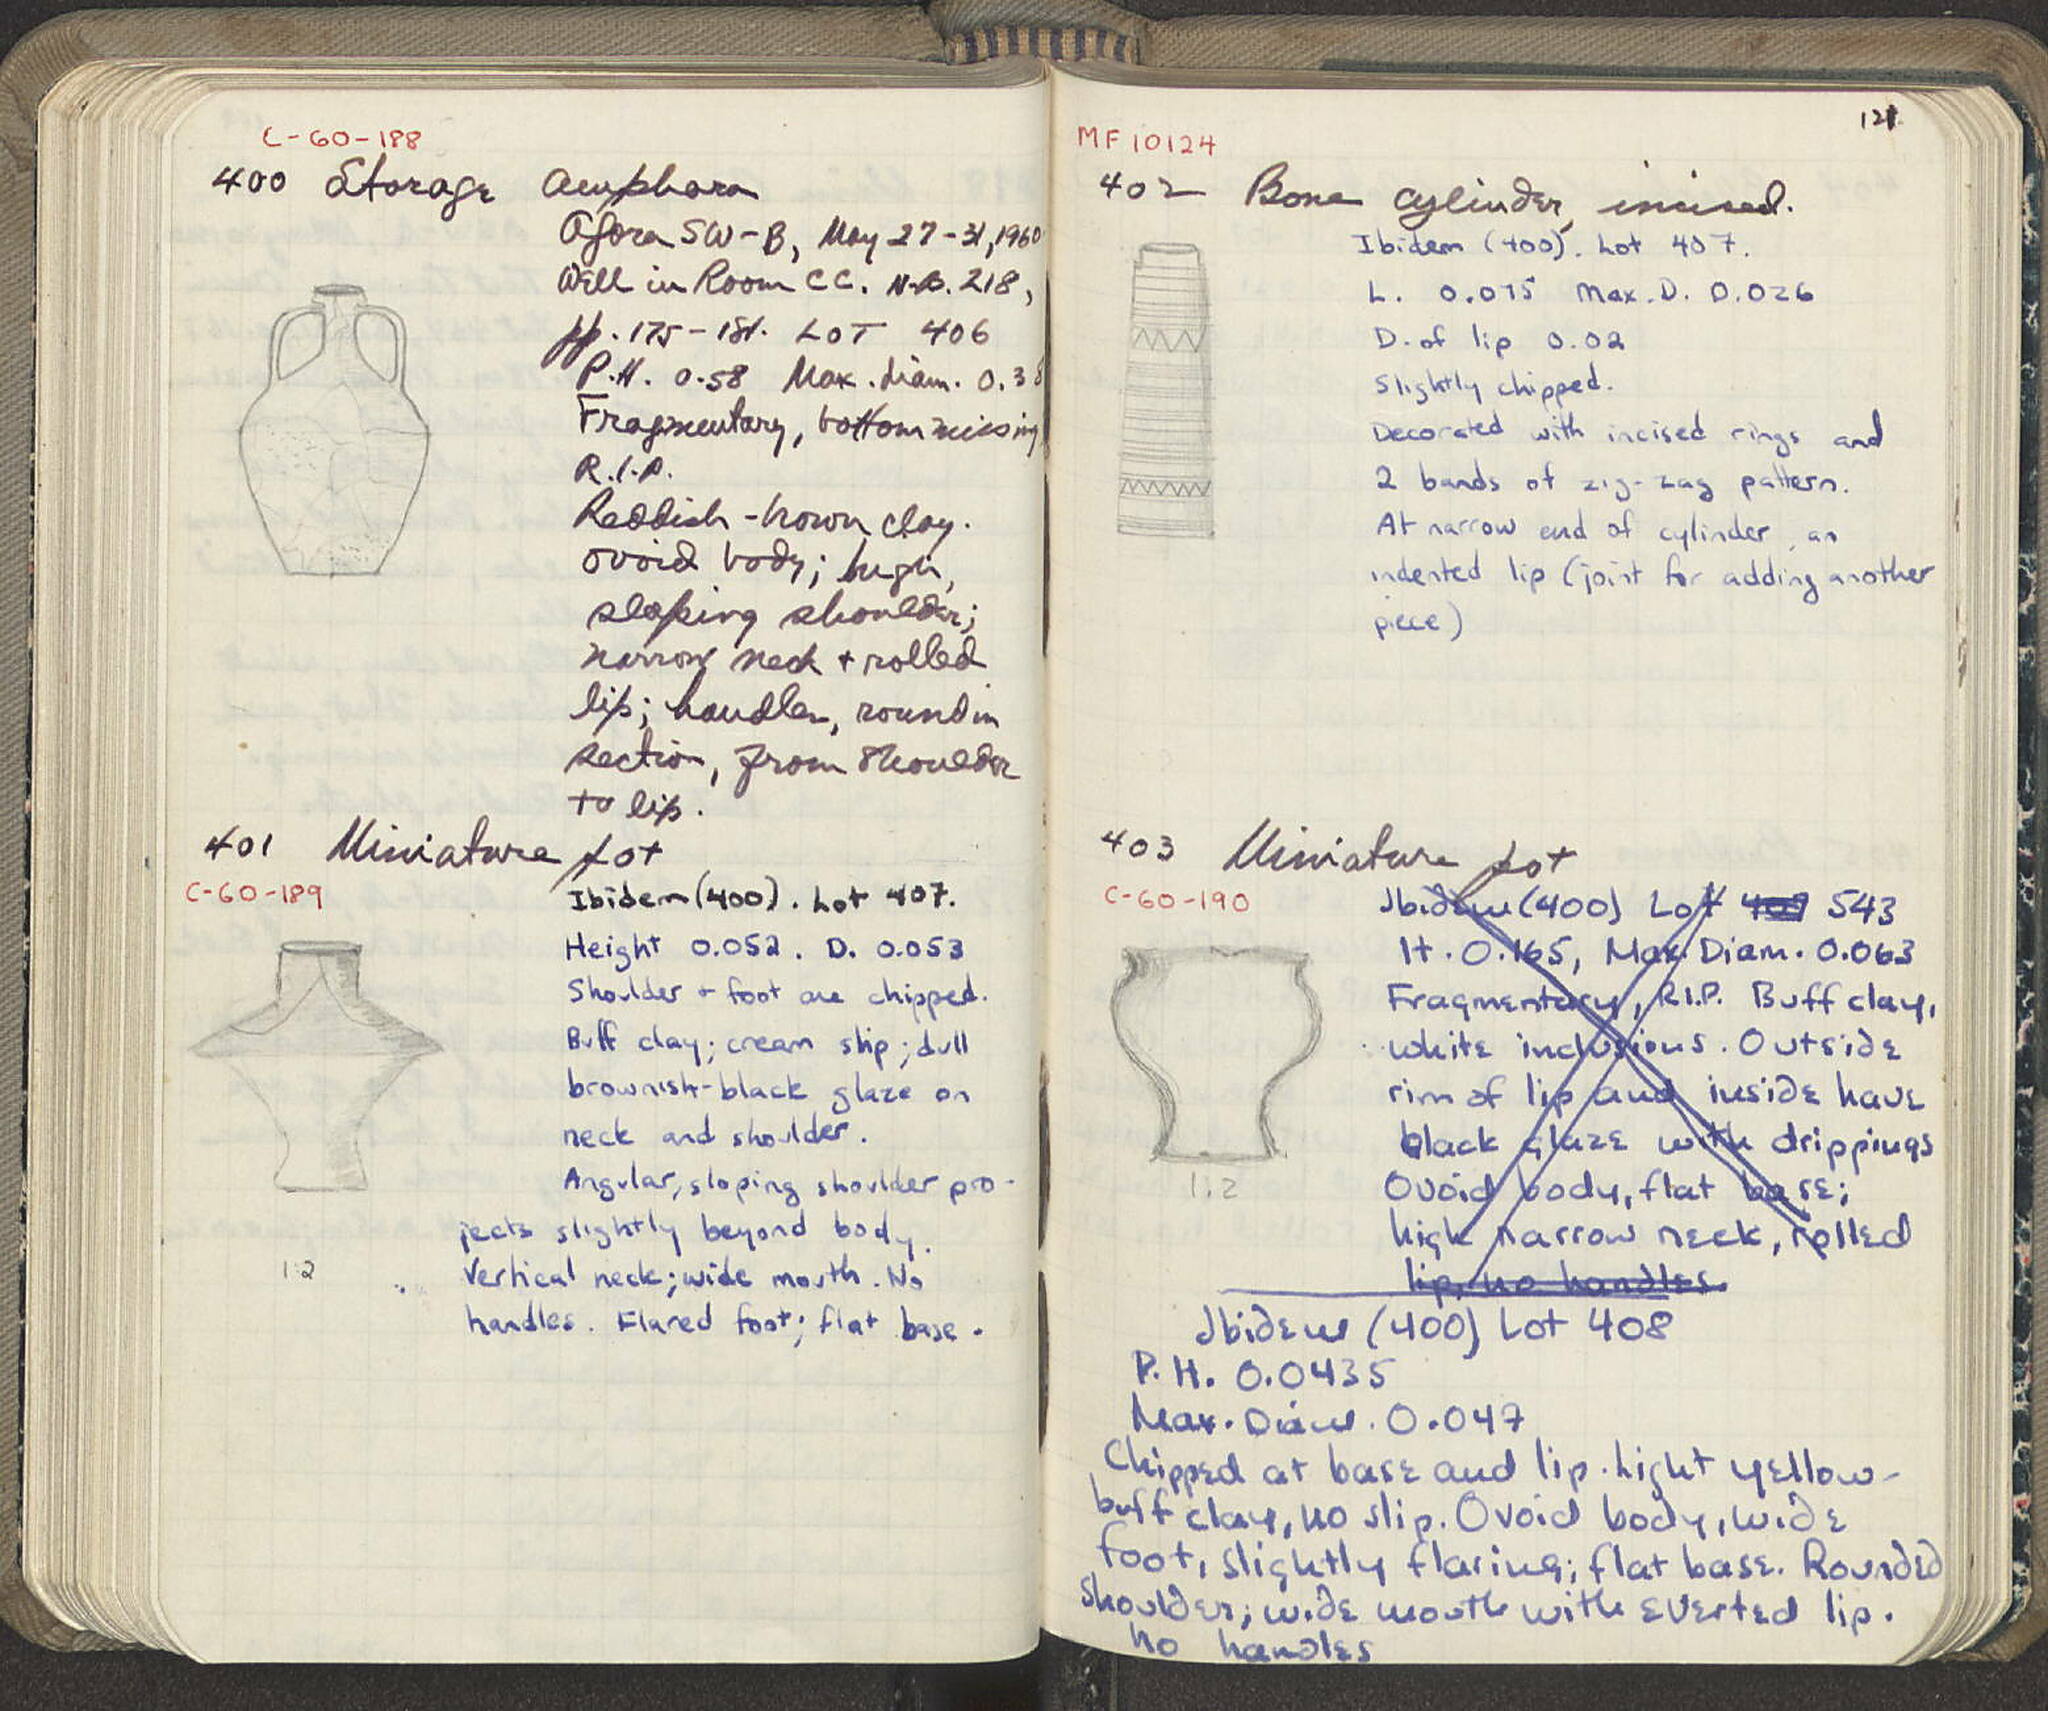 C-60-188
400 Storage amphora
Agora SW-B, May 27-31, 1960
Well in Room CC. N.B. 218,
pp. 175-181. LOT 406
P.H. 0.58 Max. diam. 0.38
Fragmentary, bottom missing
R.I.P.
Reddish-brown clay.
ovoid body; high,
sloping shoulder;
narrow neck + rolled
lip; handles, round in
section, from shoulder
to lip.
401 Miniature pot
C-60-189
Ibidem (400). Lot 407.
Height 0.052. D. 0.053
Shoulder + foot are chipped.
Buff clay; cream slip; dull
brownish-black glaze on
neck and shoulder.
Angular, sloping shoulder pro-
jects slightly beyond body.
Vertical neck; wide mouth. No
handles. Flared foot; flat base.
1:2
121
MF 10124
402 Bone cylinder, incised.
Ibidem (400). Lot 407.
L. 0.075 Max. D. 0.026
D. of lip 0.02
Slightly chipped.
Decorated with incised rings and
2 bands of zig-zag pattern.
At narrow end of cylinder, an
indented lip (joint for adding another
piece)
403 Miniature pot
C-60-190
Ibidem (400) Lot 543
H. 0.165, Max. Diam. 0.063
Fragmentary, R.I.P. Buff clay,
white inclusions. Outside
rim of lip and inside have
black glaze with drippings
Ovoid body, flat base;
high narrow neck, rolled
lip, no handles.
1:2
Ibidem (400) Lot 408
P.H. 0.0435
Max. Diam. 0.047
Chipped at base and lip. Light yellow-
buff clay, no slip. Ovoid body, wide
foot, slightly flaring; flat base. Rounded
shoulder; wide mouth with everted lip.
No handles